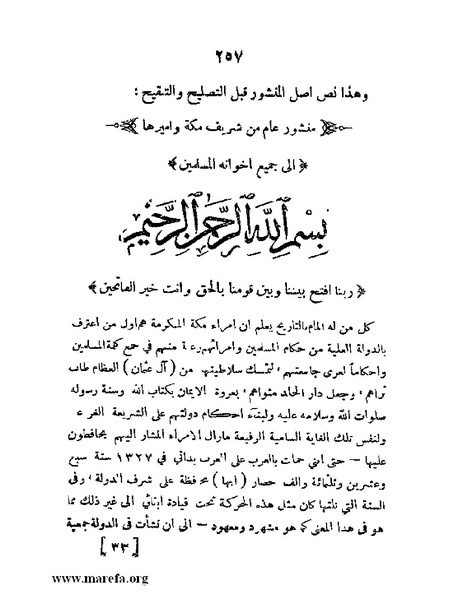 ٢٥٧
وهذا نص اصل المنشور قبل التصليح والتنقيح :
منشور عام من شريف مكة واميرها
﴿ الى جميع اخوانه المسلمين ﴾
بسم الله الرحمن الرحيم
﴿ ربنا افتح بيننا وبين قومنا بالحق وانت خير الفاتحين ﴾
كل من له المام بالتاريخ يعلم ان امراء مكة المكرمة هم اول من اعترف
بالدولة العلية من حكام المسلمين وامرائهم رغبة منهم في جمع كلمة المسلمين
واحكاماً لعرى جامعتهم، لتمسك سلاطينها من ( آل عثمان ) العظام طاب
ثراهم ، وجعل دار الخلد مثواهم ، بعروة الايمان بكتاب الله وسنة رسوله
صلوات الله وسلامه عليه ولبتناء احكام دولتهم على الشريعة الغراء
ولنفس تلك الغاية السامية الرفيعة مازال الامراء المشار اليهم يحافظون
عليها — حتى اني حملت بالعرب على العرب بذاتي في ١٣٢٧ سنة سبع
وعشرين وثلثمائة والف حصار ( ابها ) محافظة على شرف الدولة ، وفى
السنة التي تلتها كان مثل هذه الحركة تحت قيادة ابنائي الى غير ذلك مما
هو فى هذا المعنى كما هو مشهود ومعهود — الى ان نشأت فى الدولة جمعية
[ ٣٣ ]
www.marefa.org